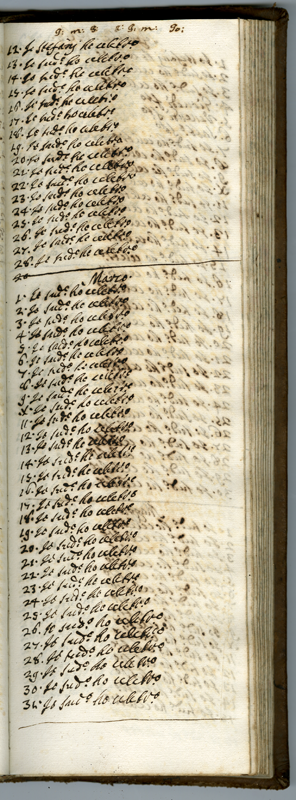 12. Io Stefanj ho celebrº
13. Io sudº ho celebrº
14. Io sudº ho celebrº
15. Io sudº ho celebrº
16. Io sudº ho celebrº
17. Io sudº ho celebrº
18. Io sudº ho celebrº
19. Io sudº ho celebrº
20. Io sudº ho celebrº
21. Io sudº ho celebrº
22. Io sudº ho celebrº
23. Io sudº ho celebrº
24. Io sudº ho celebrº
25. Io sudº ho celebrº
26. Io sudº ho celebrº
27. Io sudº ho celebrº
28. Io sudº ho celebrº
Marzo
1. Io sudº ho celebrº
2. Io sudº ho celebrº
3. Io sudº ho celebrº
4. Io sudº ho celebrº
5. Io sudº ho celebrº
6. Io sudº ho celebrº
7. Io sudº ho celebrº
8. Io sudº ho celebrº
9. Io sudº ho celebrº
10. Io sudº ho celebrº
11. Io sudº ho celebrº
12. Io sudº ho celebrº
13. Io sudº ho celebrº
14. Io sudº ho celebrº
15. Io sudº ho celebrº
16. Io sudº ho celebrº
17. Io sudº ho celebrº
18. Io sudº ho celebrº
19. Io sudº ho celebrº
20. Io sudº ho celebrº
21. Io sudº ho celebrº
22. Io sudº ho celebrº
23. Io sudº ho celebrº
24. Io sudº ho celebrº
25. Io sudº ho celebrº
26. Io sudº ho celebrº
27. Io sudº ho celebrº
28. Io sudº ho celebrº
29. Io sudº ho celebrº
30. Io sudº ho celebrº
31. Io sudº ho celebrº